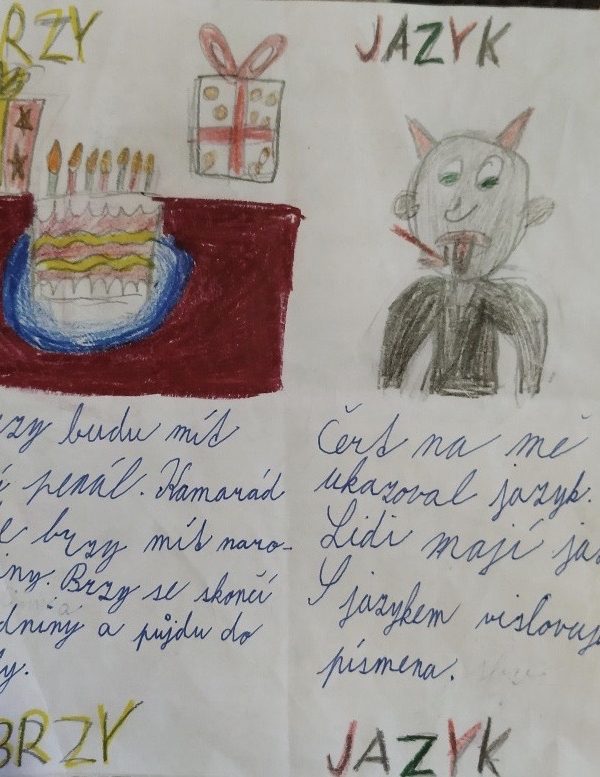 BRZY
rzy budu mít
í penál. Kamarád
e brzy mít naro-
iny. Brzy se skončí
dniny a půjdu do
ly.
BRZY
JAZYK
Čert na mě
ukazoval jazyk.
Lidi mají jaz
S jazykem vislovuj
písmena.
JAZYK